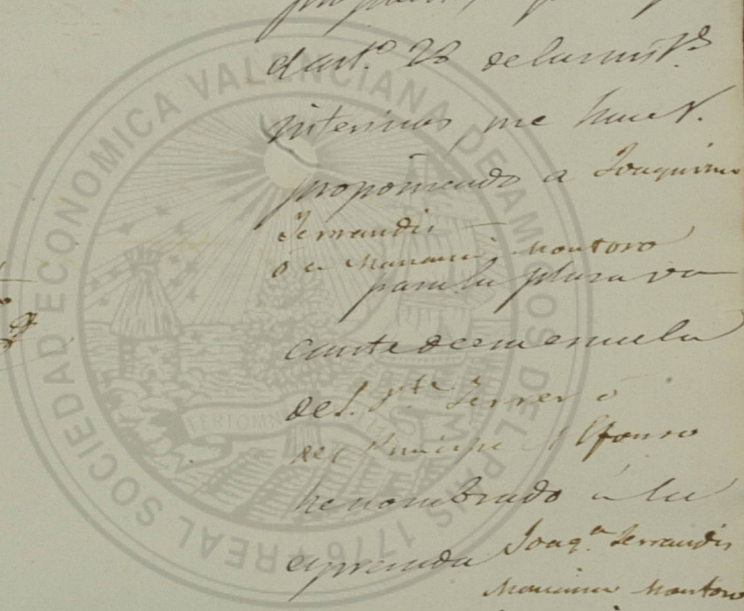 el art.º 28 de las inst.s
interinas, me hace V.
proponiendo a Joaquina
Ferrandis
ó a Mariana Montoro
para la plaza va
cante de esa escuela
de S. V.te Ferrer ó
del Principe Alfonso
he nombrado á la
espresada Joaq.a Ferrandis
Mariana Montoro
REAL SOCIEDAD ECONOMICA VALENCIANA DE AMIGOS DEL PAIS 1776